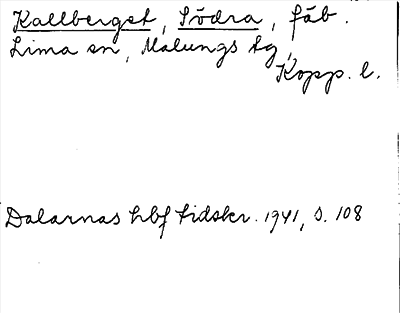 Kallberget, Södra, fäb.
Lima sn, Malungs tg,
Kopp. l.
Dalarnas hbf tidskr. 1941, s. 108